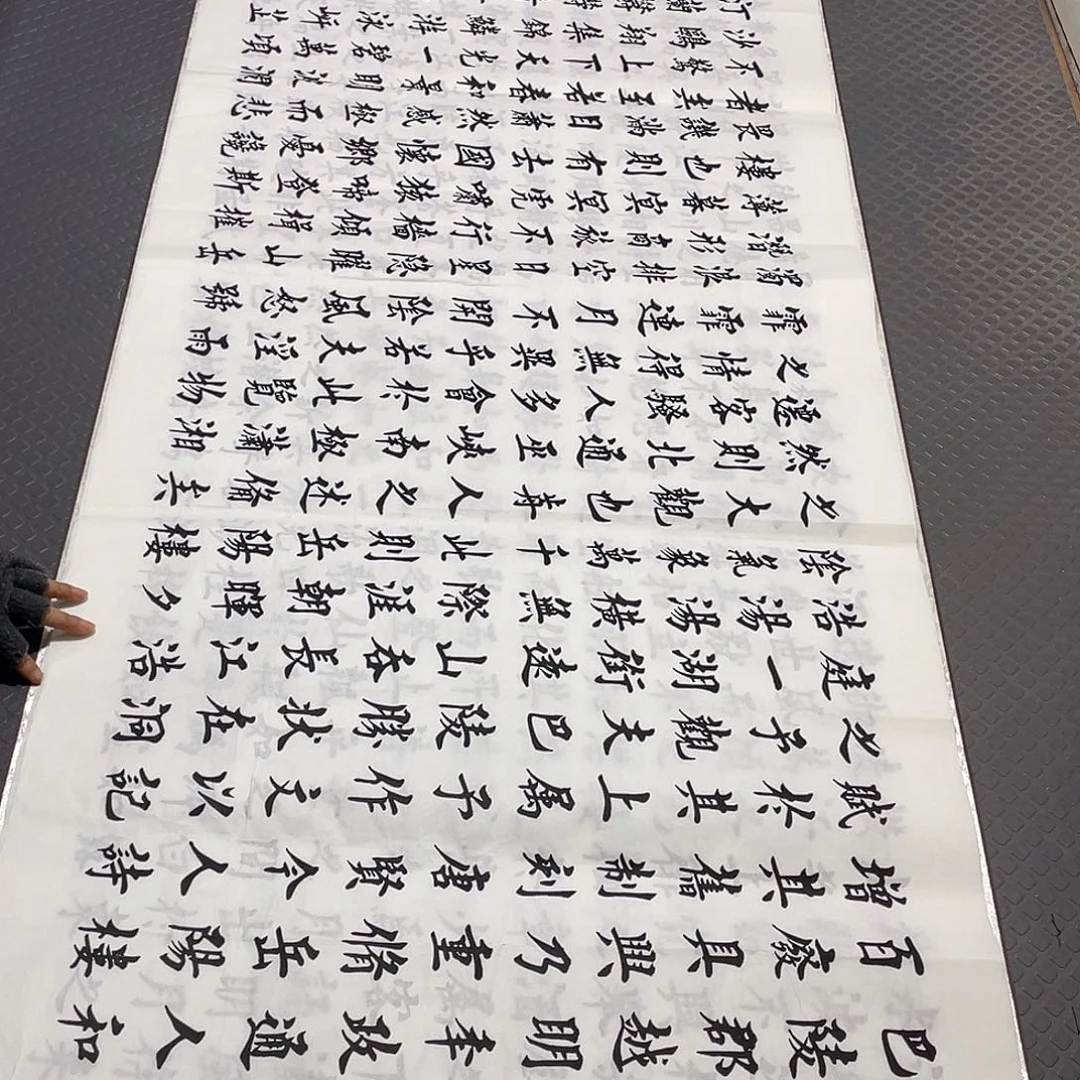 巴陵郡越明年政通人和
百廢具興乃重脩岳陽樓
增其舊制刻唐賢今人詩
賦於其上属予作文以記
之予觀夫巴陵勝狀在洞
庭一湖銜遠山吞長江浩
浩湯湯橫無際涯朝暉夕
陰氣象萬千此則岳陽樓
之大觀也前人之述備矣
然則北通巫峽南極瀟湘
遷客騷人多會於此覽物
之情得無異乎若夫淫雨
霏霏連月不開陰風怒號
濁浪排空日星隱曜山岳
潛形商旅不行檣傾楫摧
薄暮冥冥虎嘯猿啼登斯
樓也則有去國懷鄉憂讒
畏譏滿目蕭然感極而悲
者矣至若春和景明波瀾
不驚上下天光一碧萬頃
沙鷗翔集錦鱗游泳岸芷
汀蘭